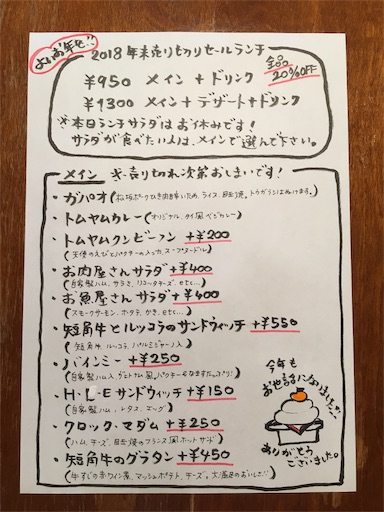 よいお年を!!
2018年末売りつくりセールランチ
全品20%OFF
¥950 メイン+ドリンク
¥1300 メイン+デザート+ドリンク
※本日ランチサラダはお休みです!
サラダが食べたい人は、メインで選んで下さい。
メイン ※売り切れ次第おしまいです!
・ガパオ(松坂ポークひき肉目辛いため、ライス、目玉焼。トウガラシはぬけます。)
・トムヤムカレー(オリジナル、タイ風ベジカレー)
・トムヤムクンビーフン +¥200
(天使のえびとパクチーの入ったスープヌードル)
・お肉屋さんサラダ +¥400
(自家製ハム、サラミ、リコッタチーズ、etc...)
・お魚屋さんサラダ +¥400
(スモークサーモン、ホタテ、かき、etc...)
・短角牛とルッコラのサンドウィッチ +¥550
(短角牛、ルッコラ、パルミジャーノ入)
・バインミー +¥250
(自家製ハム入、ヴェトナム風。パクチーもなますたっぷり!)
・H・L・Eサンドウィッチ +¥150
(自家製ハム、レタス、エッグ)
・クロック・マダム +¥250
(ハム、チーズ、目玉焼のフランス風ホットサンド)
・短角牛のグラタン +¥450
(牛すじの赤ワイン煮、マッシュポテト、チーズ。大満足のおいしさ!)
今年も
お世話になりました!!
ありがとう
ございました。